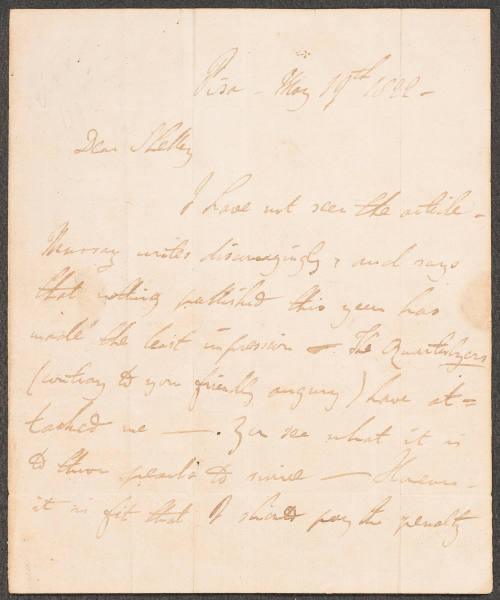 Pisa - May 17th 1822 -
Dear Shelley
I have not seen the article -
Murray writes discouragingly, and says
that nothing published this year has
made the least impression - The Quarterlyers
(contrary to your friendly augury) have at=
tacked me - . You see what it is
to throw pearls to swine - However
it is fit that I should pay the penalty